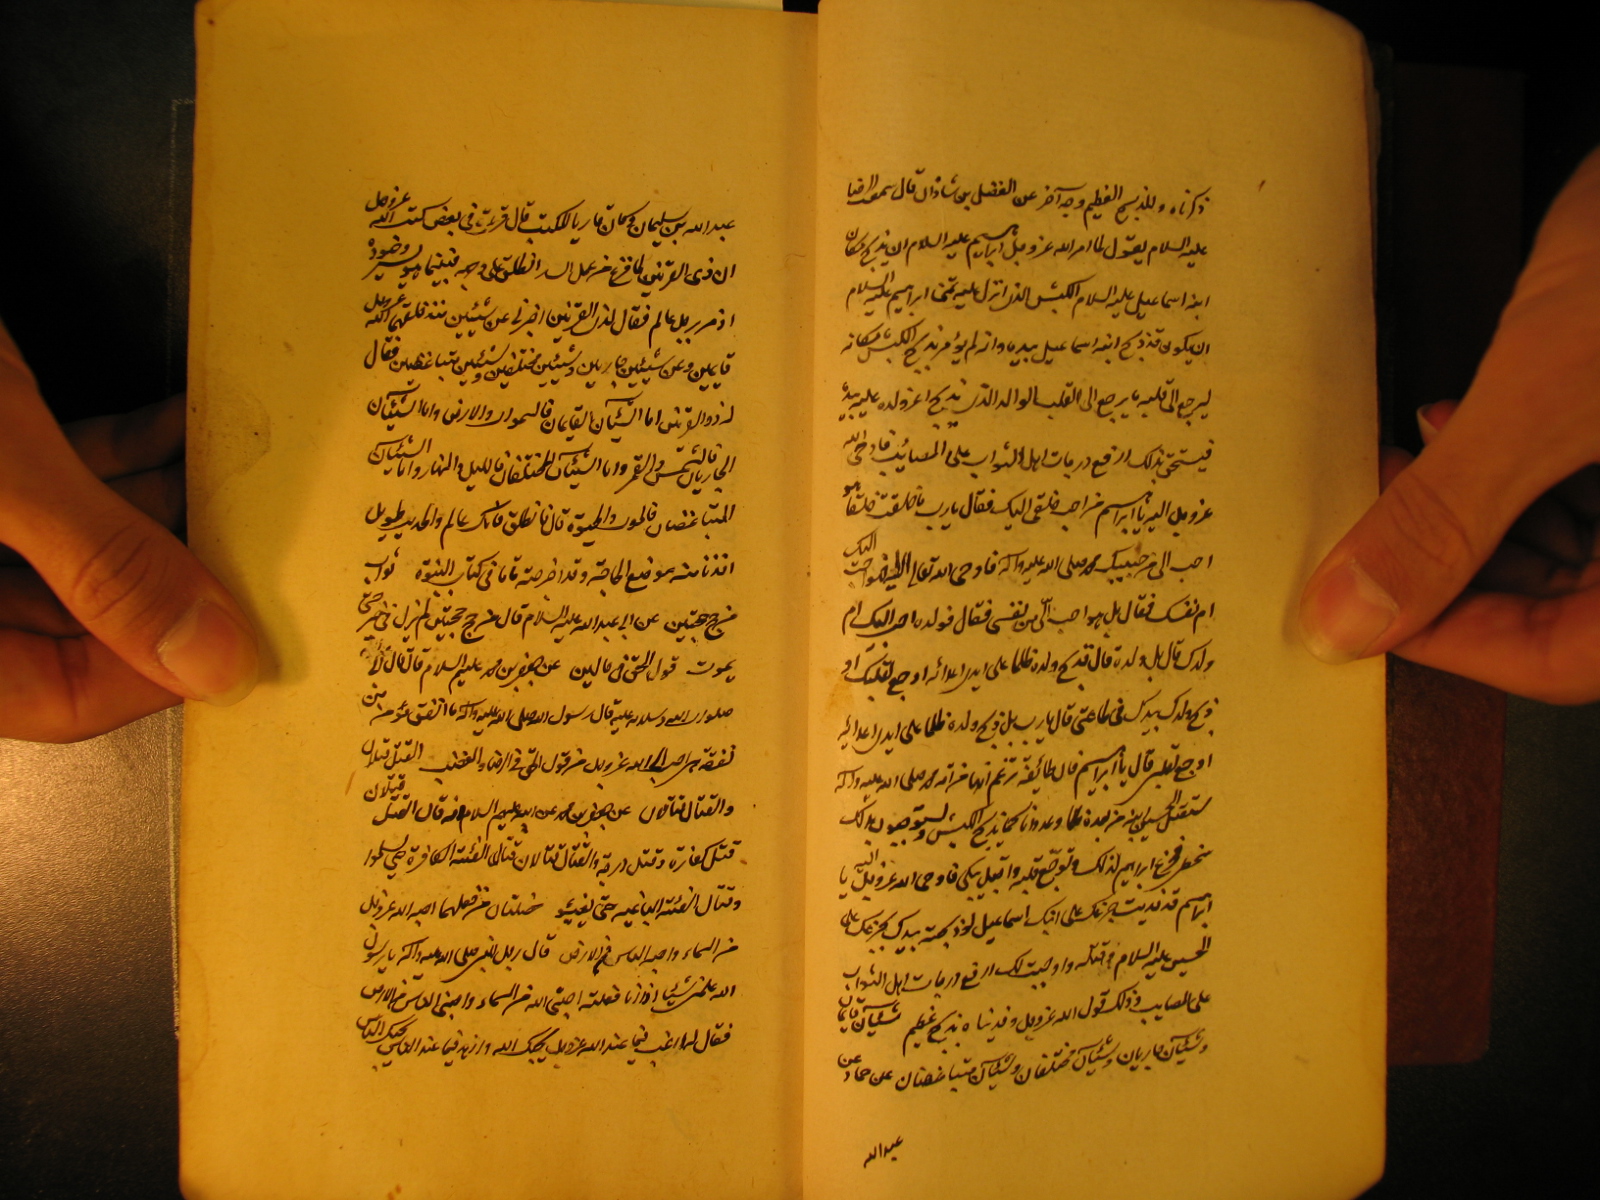 ذكرناه وللذبح العظيم وجه آخر عن الفضل بن شاذان قال سمعت الرضا
عليه السلام يقول لما امر الله عزوجل ابراهيم عليه السلام ان يذبح مكان
ابنه اسماعيل عليه السلام الكبش الذي انزل عليه تمنى ابراهيم عليه السلام
ان يكون قد ذبح ابنه اسماعيل بيده وانه لم يؤمر بذبح الكبش مكانه
ليرجع الى قلبه ما يرجع الى القلب الوالد الذي يذبح اعز ولده عليه بيده
فيستحق بذلك ارفع درجات اهل الثواب على المصائب فاوحى الله
عزوجل اليه يا ابراهيم من احب خلقي اليك فقال يا رب ما خلقت خلقا هو
احب الي من حبيبك محمد صلى الله عليه وآله فاوحى الله تعالى اليه هو احب اليك
ام نفسك فقال بل هو احب الي من نفسي فقال فولده احب اليك ام
ولدك قال بل ولده قال فذبح ولده ظلما على ايدي اعدائه اوجع لقلبك او
ذبح ولدك بيدك في طاعتي قال يا رب بل ذبح ولده ظلما على ايدي اعدائه
اوجع لقلبي قال يا ابراهيم فان طائفة تزعم انها من امة محمد صلى الله عليه وآله
ستقتل الحسين ابنه من بعده ظلما وعدوانا كما يذبح الكبش ويستوجبون بذلك
سخطي فجزع ابراهيم لذلك وتوجع قلبه واقبل يبكي فاوحى الله عزوجل اليه يا
ابراهيم قد فديت جزعك على ابنك اسماعيل لو ذبحته بيدك بجزعك على
الحسين عليه السلام وقتله واوجبت لك ارفع درجات اهل الثواب
على المصايب وذلك قول الله عزوجل وفديناه بذبح عظيم شيئان قايمان
وشيئان جاريان وشيئان مختلفان وشيئان متباغضان عن حماد عن
عبدالله
عبدالله بن سليمان وكان قاريا للكتب قال قرءت في بعض كتب الله عزوجل
ان ذي القرنين لما فرغ من عمل السد انطلق على وجهه فبينما هو يسير وجنوده
اذ مر برجل عالم فقال لذي القرنين اخبرني عن شيئين منذ خلقهما الله عزوجل
قايمين وعن شيئين جاريين وشيئين مختلفين وشيئين متباغضين فقال
له ذو القرنين اما الشيئان القايمان فالسموات والارض واما الشيئان
الجاريان فالشمس والقمر واما الشيئان المختلفان فالليل والنهار واما الشيئان
المتباغضان فالموت والحيوة قال فانطلق فانك عالم والحديث طويل
اخذنا منه موضع الحاجة وقد اخرجته تاما في كتاب النبوة ثواب
من حج حجتين عن ابي عبدالله عليه السلام قال من حج حجتين لم يزل في خير حتى
يموت قول الحق في حالين عن جعفر بن محمد عليهم السلام قال قال
صلوات الله وسلامه عليه قال رسول الله صلى الله عليه وآله ما انفق مؤمن من
نفقة هي احب الى الله عزوجل من قول الحق في الرضا والغضب القتل قتلان
والقتال قتالان عن جعفر بن محمد عن ابيه عليهم السلام انه قال القتل قتلان
قتل كفارة وقتل درجة والقتال قتالان قتال الفئة الكافرة حتى يسلموا
وقتال الفئة الباغية حتى يفيئو خصلتان من فعلهما احبه الله عزوجل
من السماء واحبه الناس في الارض قال رجل للنبي صلى الله عليه وآله يا رسول
الله علمني شيئا اذا انا فعلته احبني الله من السماء واحبني الناس من الارض
فقال له ارغب فيما عند الله عزوجل يحبك الله وازهد فيما عند الناس يحبك الناس